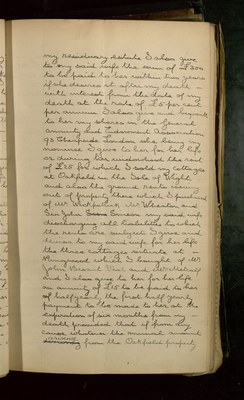 my residuary estate I also give
to my said wife the sum of £300
to be paid to her within two years
if she desires it after my death
with interest from the date of my
death at the rate of £5 per cent
per annum I also give and bequeath
to her my shares in the General
Annuity and Endowment Association
Cheapside London also her
I give to her for her life
or during her widowhood the rent
of £25 for which I sold my cottages
at Oakfield in the Isle of Wight
and also the ground rents
out of property there which I purchased
of Mr
Sir John Simeon my said wife
discharging all liabilities to which
the rents are subject I give and
devise to my said wife for her life
the three cottages situate at
which I bought of Mr
John and Mr
and I also give to her for her life
an annuity of £15 to be paid to her
half yearly the first half yearly
payment to be made to her at the
expiration of six months from my
death provided that if from any
cause whatever the annual amount
arising from the Oakfield property